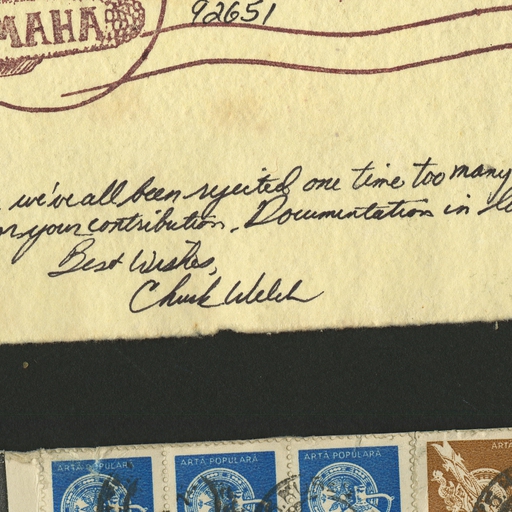 MAHA
92651
we've all been rejected one time too many
your contribution. Documentation in
Best Wishes,
Chuck Welch
ARTĂ POPULARĂ ARTĂ POPULARĂ ARTĂ POPULARĂ ARTĂ